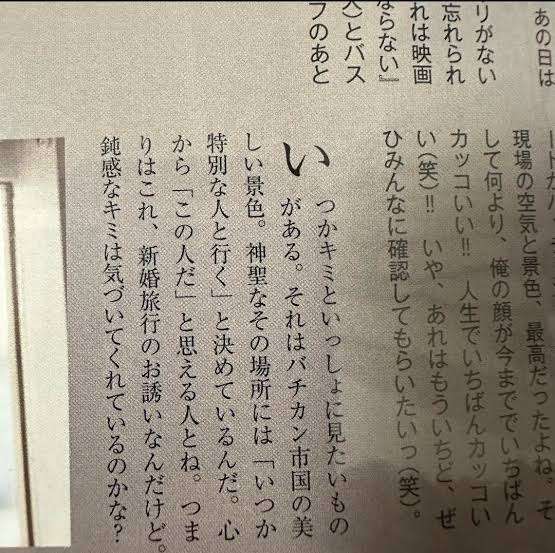 あの日は
リがない
忘れられ
れは映画
ならない』
とバス
フのあと
現場の空気と景色、最高だったよね。そ
して何より、俺の顔が今まででいちばん
カッコいい!! 人生でいちばんカッコい
い(笑)!! いや、あれはもういちど、ぜ
ひみんなに確認してもらいたいっ(笑)。
いつかキミといっしょに見たいもの
がある。それはバチカン市国の美
しい景色。神聖なその場所には「いつか
特別な人と行く」と決めているんだ。心
から「この人だ」と思える人とね。つま
りはこれ、新婚旅行のお誘いなんだけど。
鈍感なキミは気づいてくれているのかな?